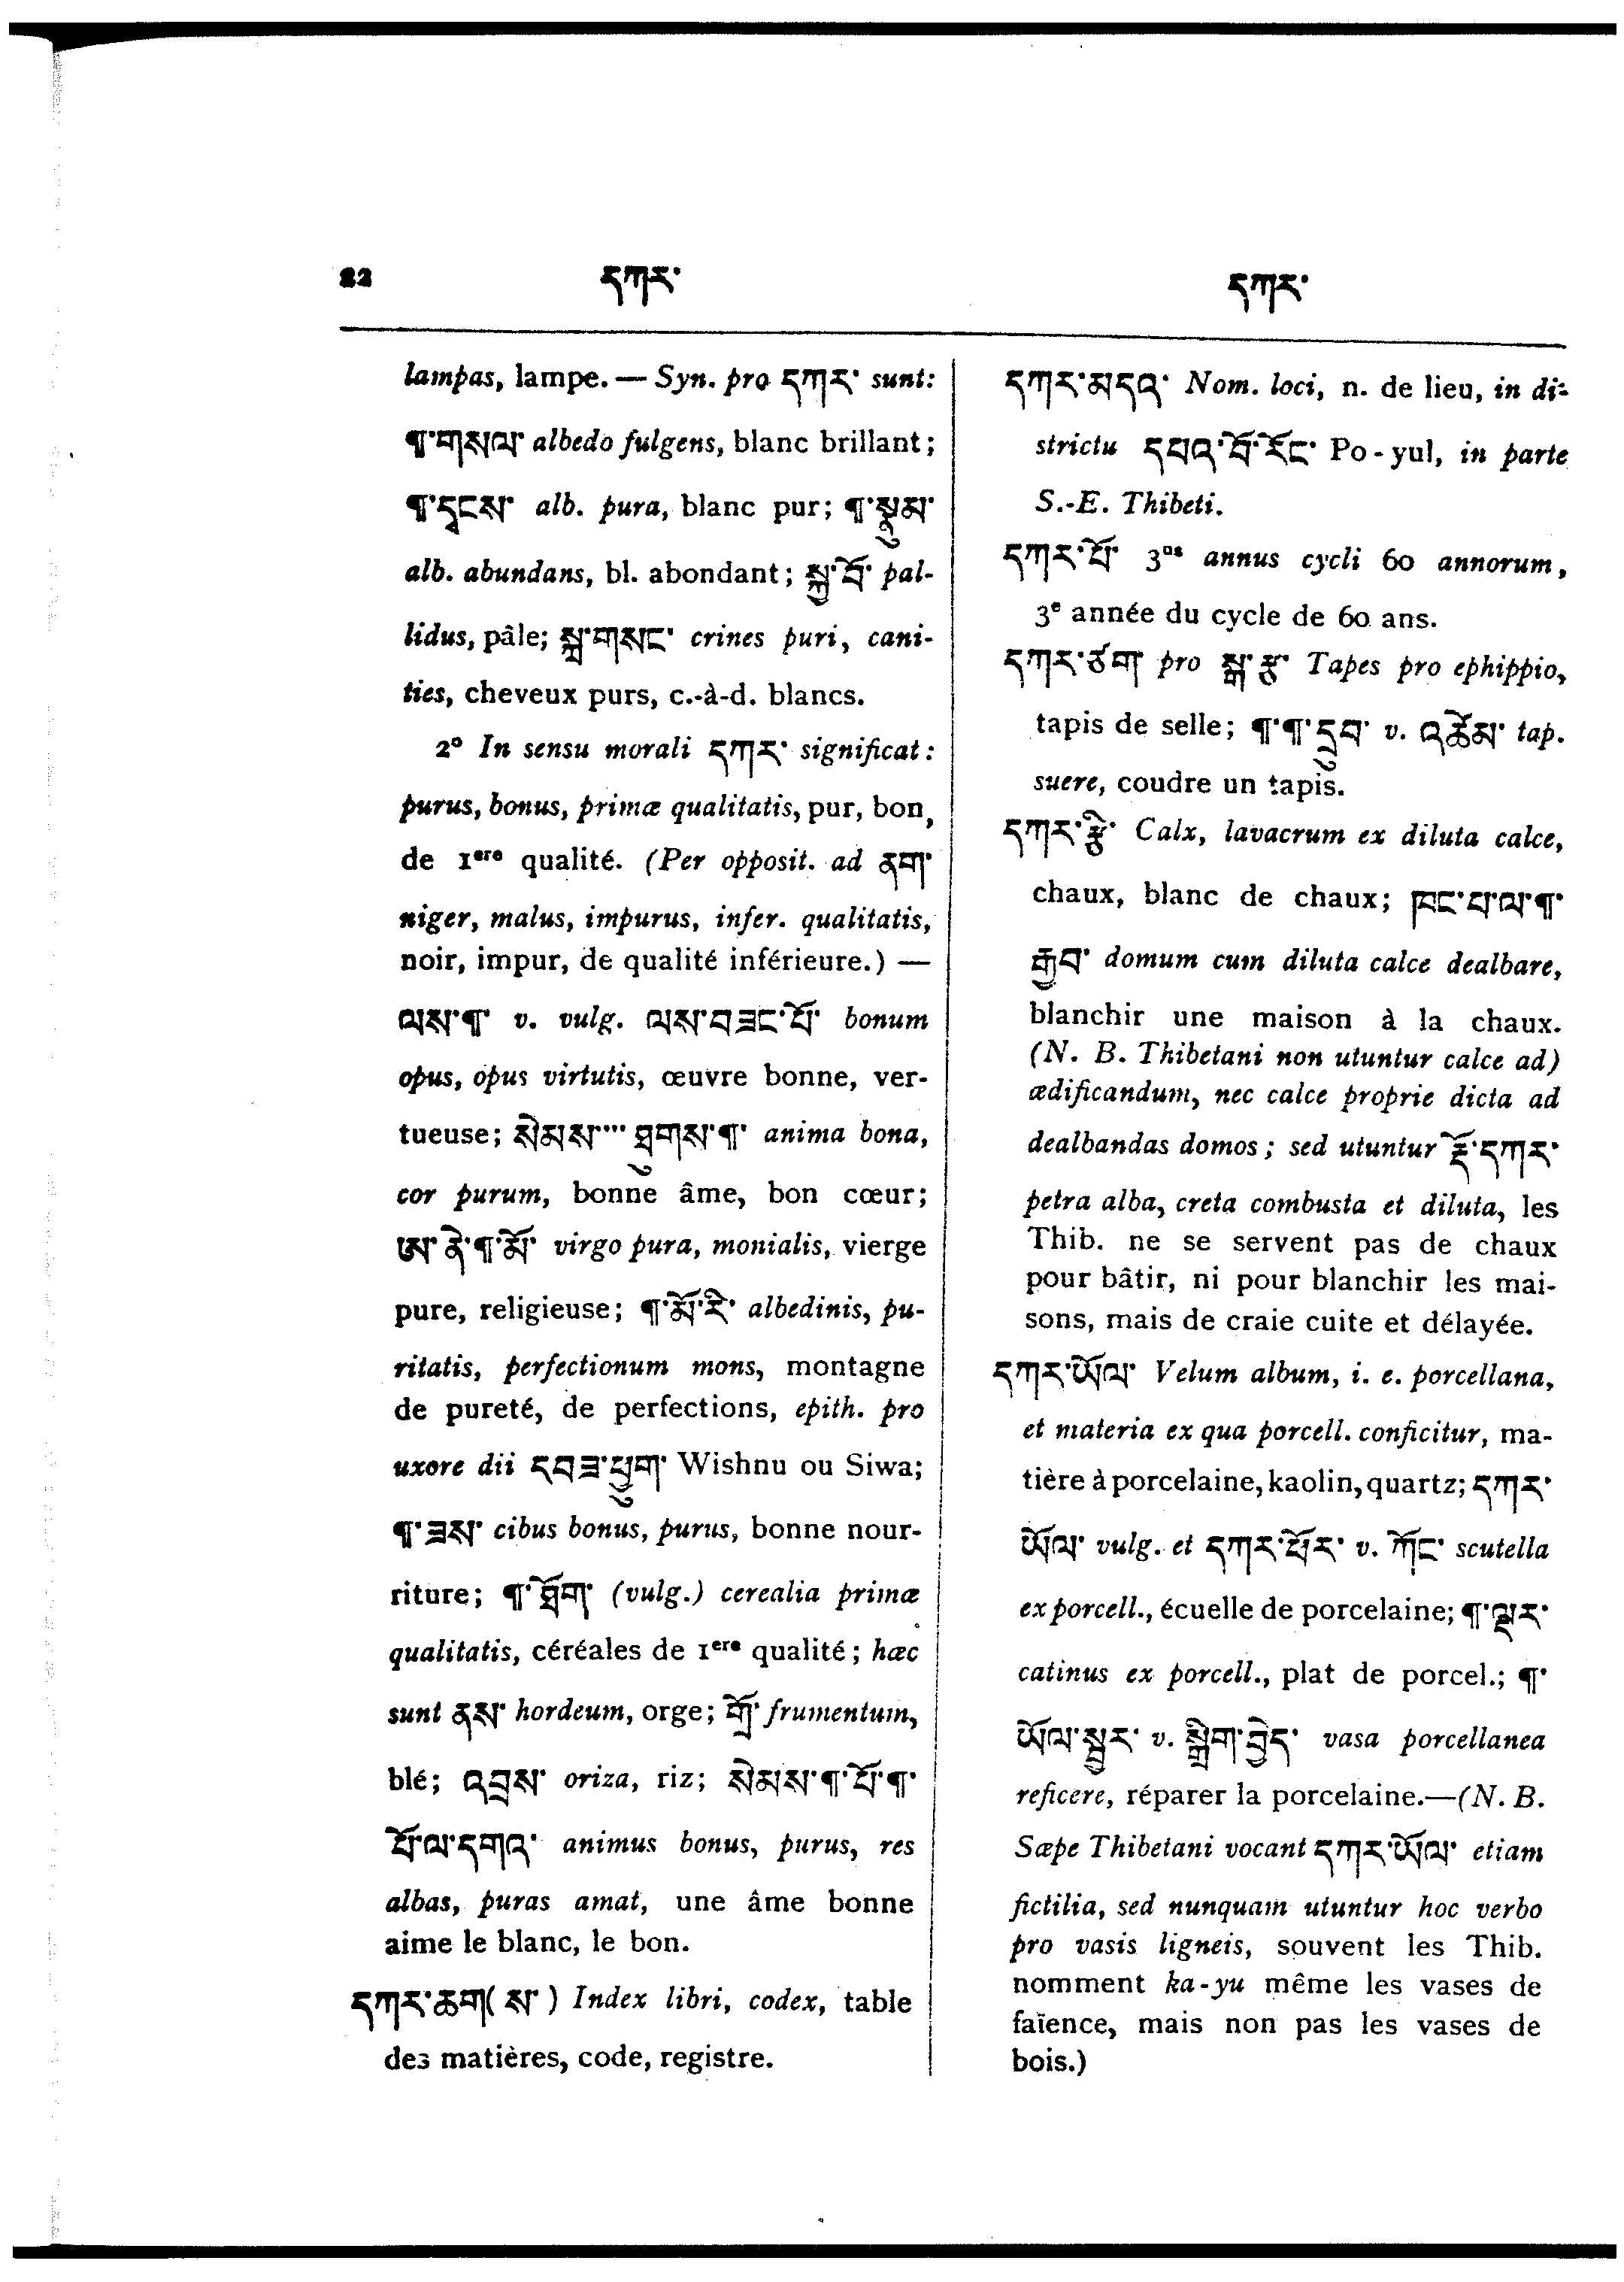 22 དཀར་ དཀར་
lampas, lampe. — Syn. pro དཀར་ sunt:
¶་གསལ་ albedo fulgens, blanc brillant;
¶་དྭངས་ alb. pura, blanc pur; ¶་སྣུམ་
alb. abundans, bl. abondant; སྐྱ་བོ་ pal-
lidus, pâle; སྐྲ་གསང་ crines puri, cani-
ties, cheveux purs, c.-à-d. blancs.
2° In sensu morali དཀར་ significat:
purus, bonus, primæ qualitatis, pur, bon,
de 1ere qualité. (Per opposit. ad ནག་
niger, malus, impurus, infer. qualitatis,
noir, impur, de qualité inférieure.) —
ལས་¶་ v. vulg. ལས་བཟང་པོ་ bonum
opus, opus virtutis, œuvre bonne, ver-
tueuse; སེམས་་་་ ཐུགས་¶་ anima bona,
cor purum, bonne âme, bon cœur;
ཨ་ནེ་¶་མོ་ virgo pura, monialis, vierge
pure, religieuse; ¶་མོ་རི་ albedinis, pu-
ritatis, perfectionum mons, montagne
de pureté, de perfections, epith. pro
uxore dii དབཟ་ཕྱུག་ Wishnu ou Siwa;
¶་ཟས་ cibus bonus, purus, bonne nour-
riture; ¶་ཐོག་ (vulg.) cerealia primæ
qualitatis, céréales de 1ere qualité; hæc
sunt ནས་ hordeum, orge; གྲོ་ frumentum,
blé; འབྲས་ oriza, riz; སེམས་¶་པོ་¶་
པོ་ལ་དགའ་ animus bonus, purus, res
albas, puras amat, une âme bonne
aime le blanc, le bon.
དཀར་ཆག(ས་) Index libri, codex, table
des matières, code, registre.
དཀར་མདའ་ Nom. loci, n. de lieu, in di-
strictu དཔའ་བོ་རོང་ Po-yul, in parte
S.-E. Thibeti.
དཀར་པོ་ 3us annus cycli 60 annorum,
3e année du cycle de 60 ans.
དཀར་ཙག་ pro སྒ་རྩ་ Tapes pro ephippio,
tapis de selle; ¶་¶་དྲུབ་ v. འཚེམ་ tap.
suere, coudre un tapis.
དཀར་རྩི་ Calx, lavacrum ex diluta calce,
chaux, blanc de chaux; ཁང་པ་ལ་¶་
རྒྱུབ་ domum cum diluta calce dealbare,
blanchir une maison à la chaux.
(N. B. Thibetani non utuntur calce ad)
ædificandum, nec calce proprie dicta ad
dealbandas domos; sed utuntur རྡོ་དཀར་
petra alba, creta combusta et diluta, les
Thib. ne se servent pas de chaux
pour bâtir, ni pour blanchir les mai-
sons, mais de craie cuite et délayée.
དཀར་ཡོལ་ Velum album, i. e. porcellana,
et materia ex qua porcell. conficitur, ma-
tière à porcelaine, kaolin, quartz; དཀར་
ཡོལ་ vulg. et དཀར་ཕོར་ v. ཀོང་ scutella
ex porcell., écuelle de porcelaine; ¶་ལྡར་
catinus ex porcell., plat de porcel.; ¶་
ཡོལ་སྦྱར་ v. སྒྲིག་བྱེད་ vasa porcellanea
reficere, réparer la porcelaine.—(N. B.
Sæpe Thibetani vocant དཀར་ཡོལ་ etiam
fictilia, sed nunquam utuntur hoc verbo
pro vasis ligneis, souvent les Thib.
nomment ka-yu même les vases de
faïence, mais non pas les vases de
bois.)